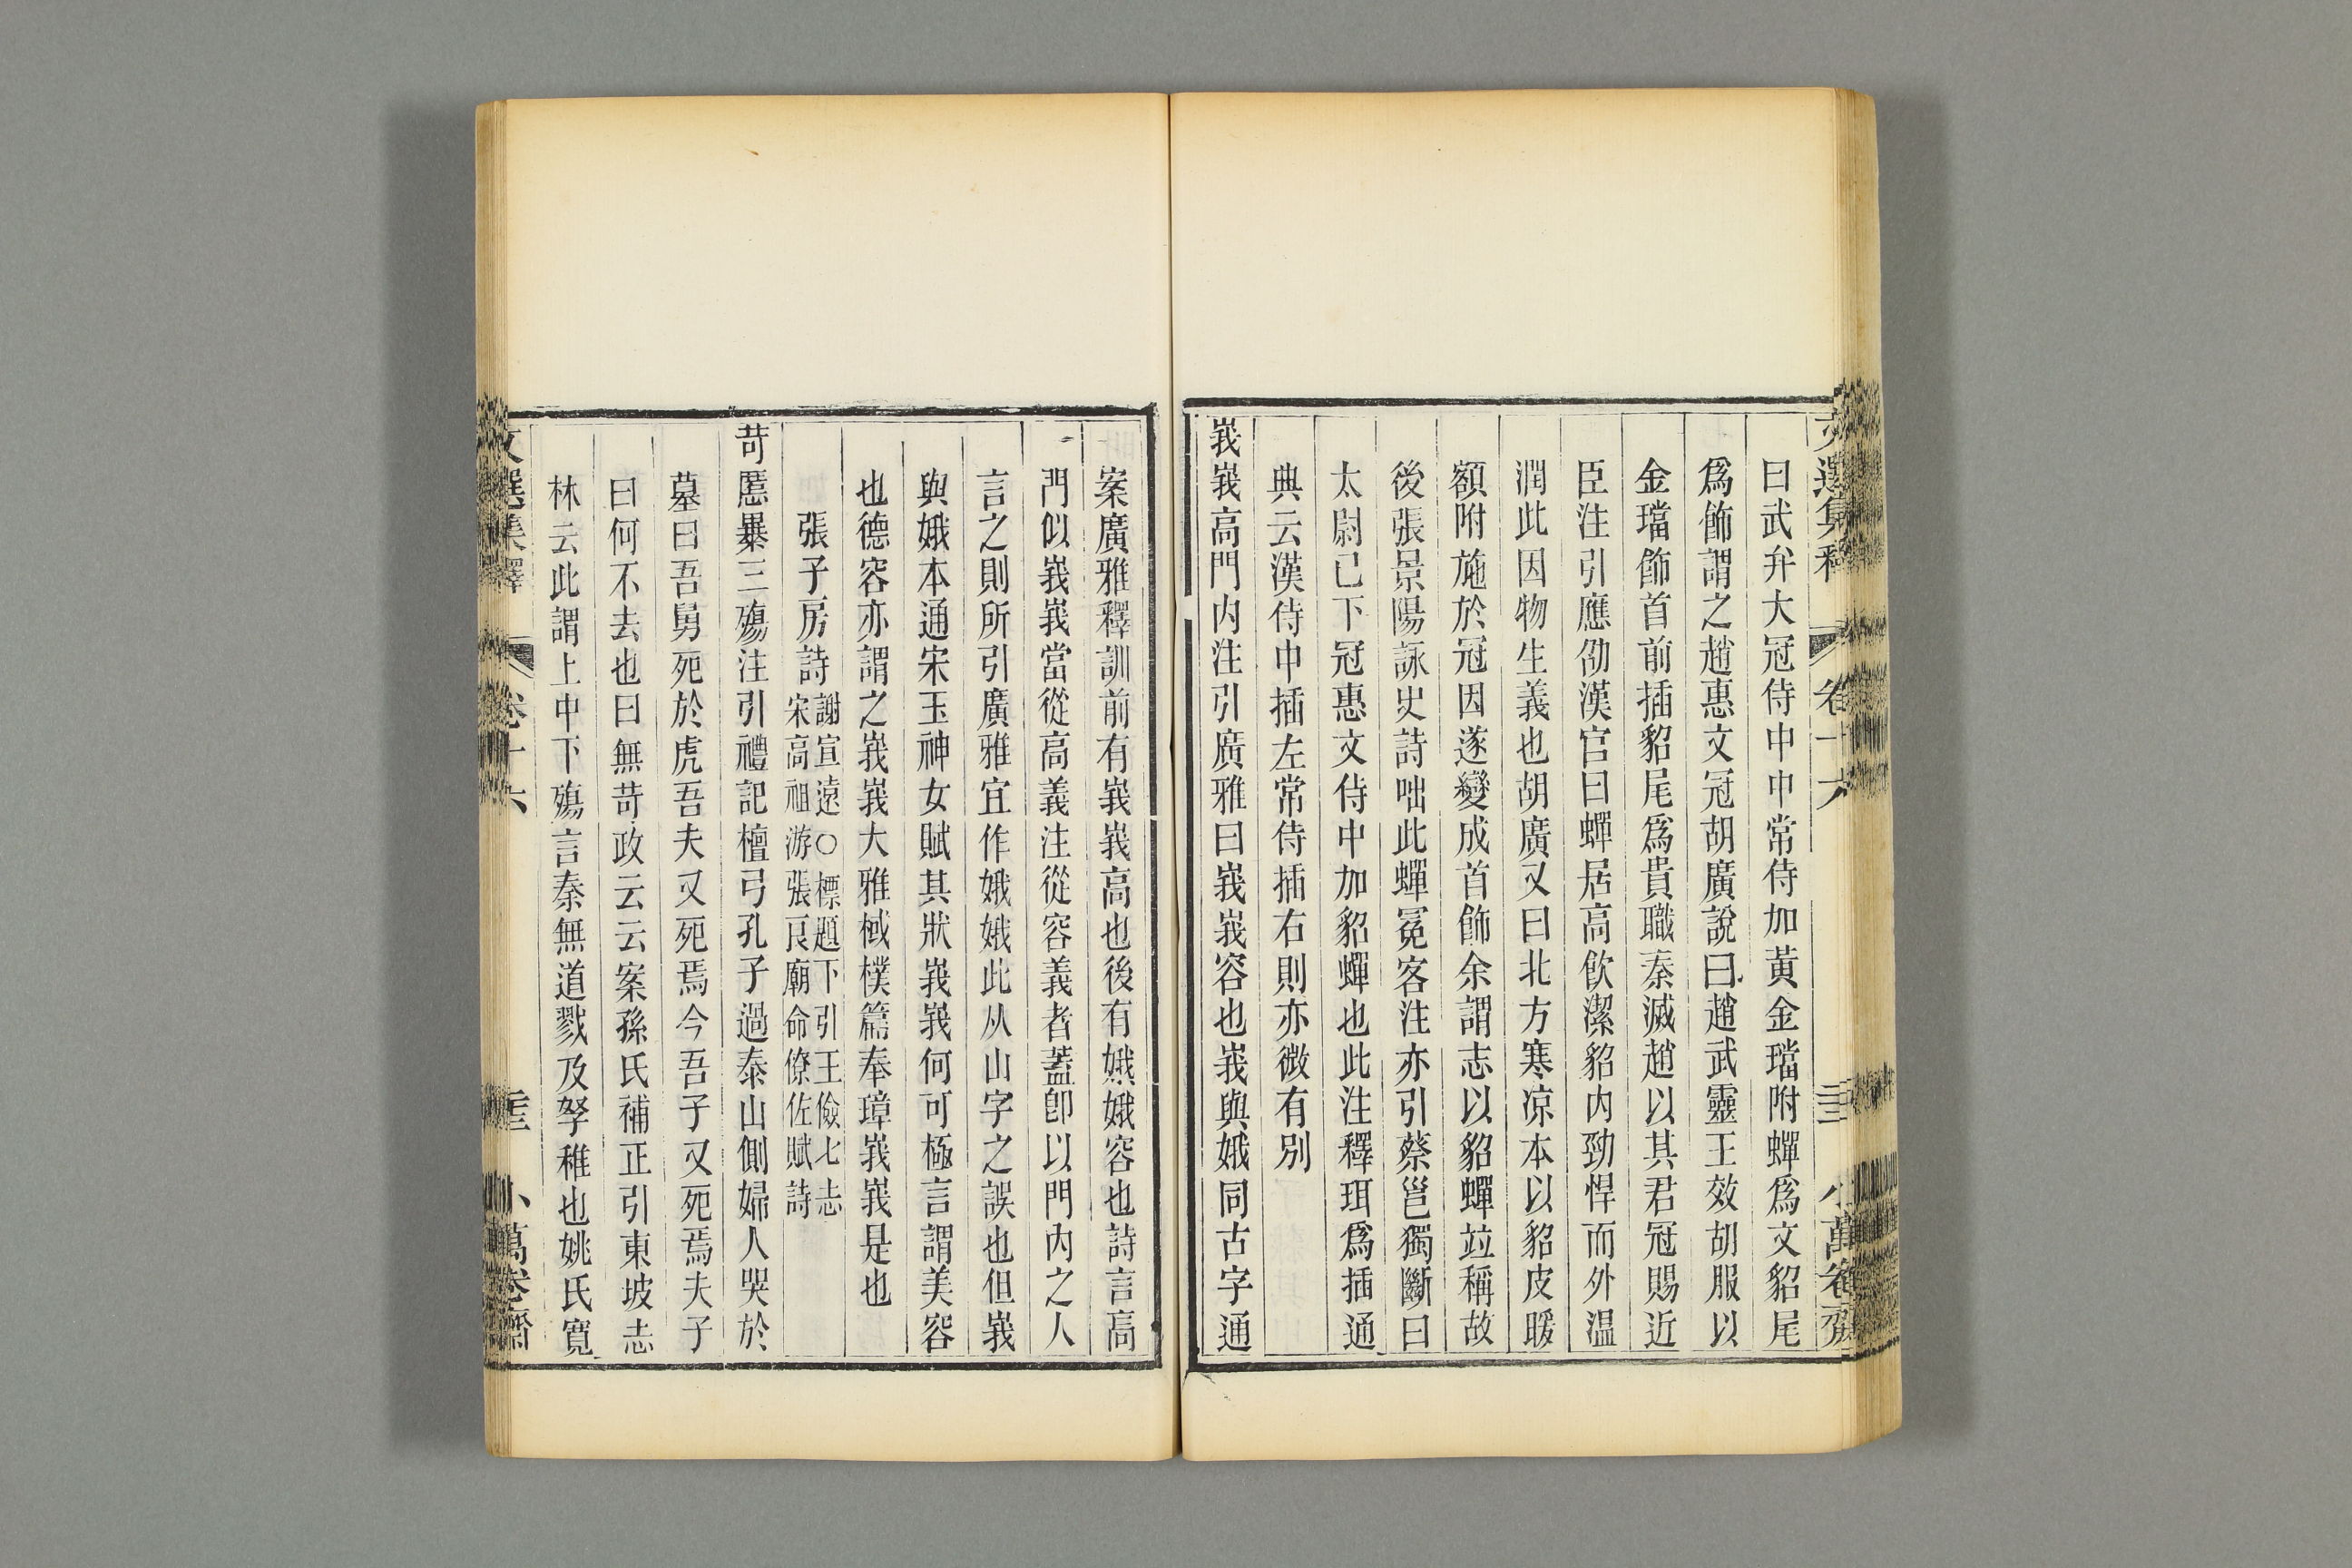 文選集釋 卷十六 二十二 小萬卷齋
曰武弁大冠侍中中常侍加黃金璫附蟬爲文貂尾
爲飾謂之趙惠文冠胡廣說曰趙武靈王效胡服以
金璫飾首前插貂尾爲貴職秦滅趙以其君冠賜近
臣注引應劭漢官曰蟬居高飲潔貂內勁悍而外温
潤此因物生義也胡廣又曰北方寒凉本以貂皮暖
額附施於冠因遂變成首飾余謂志以貂蟬竝稱故
後張景陽詠史詩咄此蟬冕客注亦引蔡邕獨斷曰
太尉已下冠惠文侍中加貂蟬也此注釋珥爲插通
典云漢侍中插左常侍插右則亦微有別
峩峩高門內注引廣雅曰峩峩容也峩與娥同古字通
案廣雅釋訓前有峩峩高也後有娥娥容也詩言高
門似峩峩當從高義注從容義者蓋卽以門內之人
言之則所引廣雅宜作娥娥此从山字之誤也但峩
與娥本通宋玉神女賦其狀峩峩何可極言謂美容
也德容亦謂之峩峩大雅棫樸篇奉璋峩峩是也
張子房詩 謝宣遠〇標題下引王儉七志
宋高祖游張良廟命僚佐賦詩
苛慝暴三殤注引禮記檀弓孔子過泰山側婦人哭於
墓曰吾舅死於虎吾夫又死焉今吾子又死焉夫子
曰何不去也曰無苛政云云案孫氏補正引東坡志
林云此謂上中下殤言秦無道戮及孥稚也姚氏寬
文選集釋 卷十六 二十三 小萬卷齋